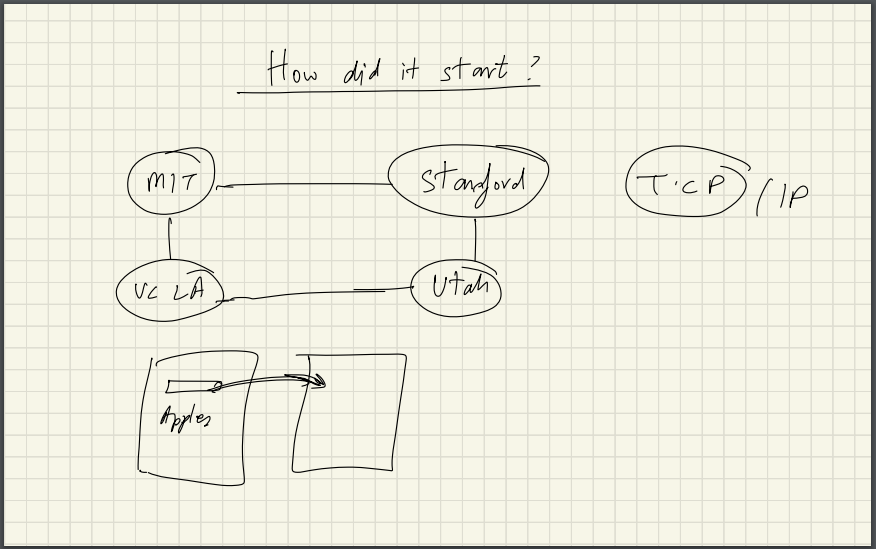 How did it start?
MIT Stanford T.CP/IP
UCLA Utah
Apples